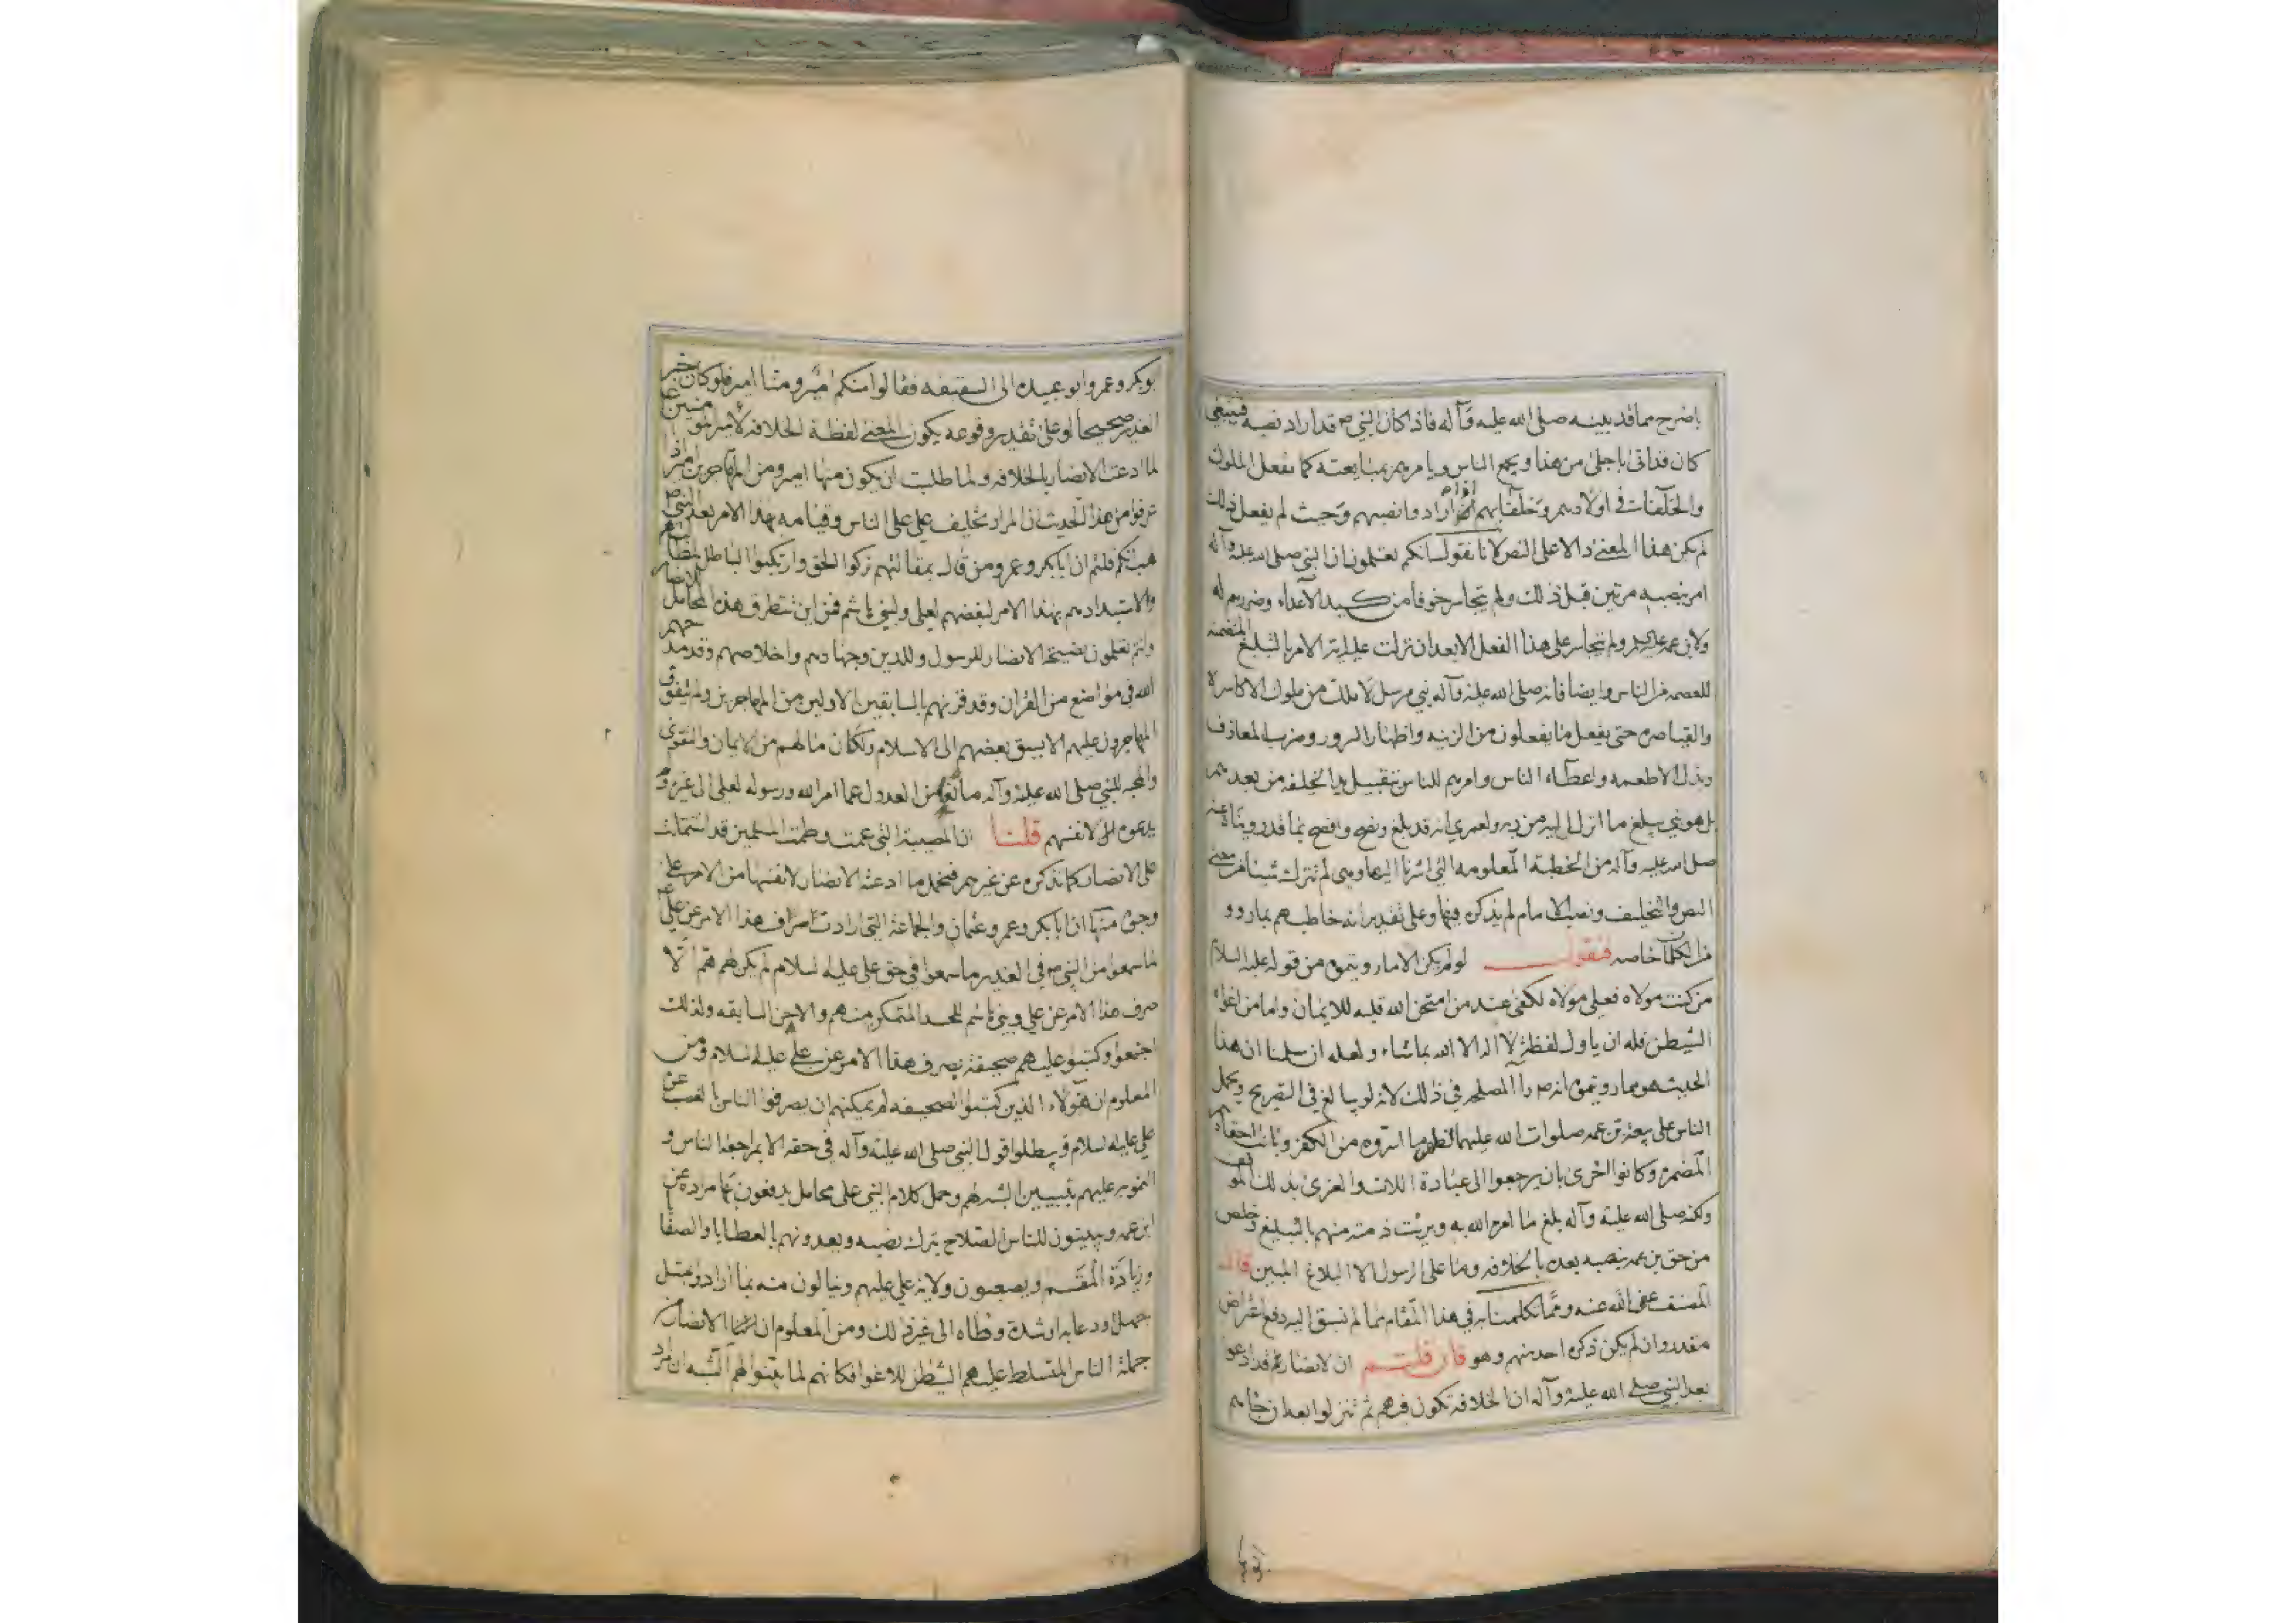 باصرح مما قد بينه صلى الله عليه وآله فاذا كان النبي ص قد اراد نصبه فينبغي
كان قد اتى باجلى من هذا ويجمع الناس ويامرهم بمبايعته كما يفعل الملوك
والخلفاء في اولادهم وخلفائهم اذا ارادوا نصبهم وحيث لم يفعل ذلك
لم يكن هذا المعنى دالا على النص لانا نقول انكم تعلمون ان النبي صلى الله عليه وآله
امر بنصبه مرتين قبل ذلك ولم يتجاسر خوفا من كيد الاعداء وضررهم له
ولابن عمه ولم يتجاسر على هذا الفعل الا بعد ان نزلت عليه اية الامر بالتبليغ المتضمنة
للعصمه من الناس وايضا فانه صلى الله عليه وآله نبي مرسل لا ملك من ملوك الاكاسرة
والقياصره حتى يفعل ما يفعلون من الزينه واظهار السرور وضرب المعازف
وبذل الاطعمه واعطاء الناس وامرهم للناس بتقبيل يد الخليفه من بعدهم
بل هو نبي يبلغ ما انزل اليه من ربه ولعمري انه قد بلغ ونصح وافصح بما قد رويناه عنه
صلى الله عليه وآله من الخطبة المعلومه التي اشرنا اليها وهي لم تترك شيئا من معنى
النص والتخليف ونصب الامام لم يذكره فيها وعلى تقدير انه خاطبهم بما رووه
من الكلمات خاصه فنقول لو لم يكن الا ما رويتموه من قوله عليه السلام
من كنت مولاه فعلي مولاه لكفى عند من امتحن الله قلبه للايمان واما من اغواه
الشيطن فله ان ياول لفظة لا اله الا الله بما شاء ولعله ان سلمنا ان هذا
الحديث هو ما رويتموه انه ص راى المصلحه في ذلك لانه لو يبالغ في التصريح ويحمل
الناس على بيعة بن عمه صلوات الله عليهما لظهر ما استروه من الكفر وبانت احقادهم
المضمره وكانوا احرى بان يرجعوا الى عبادة اللات والعزى بذلك الموقف
ولكنه صلى الله عليه وآله بلغ ما امره الله به وبريت ذمته منهم بالتبليغ وخلص
من حق بن عمه بنصبه بعده بالخلافه وما على الرسول الا البلاغ المبين قال
المصنف عفى الله عنه ومما تكلمنا به في هذا المقام بما لم نسبق اليه دفع اعتراض
مقدر وان لم يكن ذكره احد منهم وهو فان قلتم ان الانصار قد ادعوا
بعد النبي صلى الله عليه وآله ان الخلافه تكون فيهم ثم تنزلوا بعد ان جاءهم
ابو بكر
بو بكر وعمر وابو عبيده الى السقيفه فقالوا منكم امير ومنا امير فلو كان خبر
الغدير صحيحا او على تقدير وقوعه يكون المعنى لفظة الخلافه لامير المومنين
لما ادعت الانصار بالخلافه ولما طلبت ان يكون منها امير ومن المهاجرين امير اذا
عرفوا من هذا الحديث ان المراد تخليف علي على الناس وقيامه بهذا الامر بعد النبي ص
هب انكم قلتم ان ابا بكر وعمر ومن قال بمقالتهم تركوا الحق وارتكبوا الباطل
والاستبدادهم بهذا الامر لبغضهم لعلي ولبني هاشم فمن اين تتطرق هذا المحامل للانصار
وانتم تعلمون نصيحة الانصار للرسول وللدين وجهادهم واخلاصهم وقد مدحهم
الله في مواضع من القران وقد قرنهم بالسابقين الاولين من المهاجرين ولم يتفوق
المهاجرون عليهم الا بسبق بعضهم الى الاسلام ولكان ما لهم من الايمان والتقوى
والمحبه للنبي صلى الله عليه وآله من العدول عما امر الله ورسوله لعلي الى غيره
يدعوه الى لانفسهم قلنا ان المصيبة التي عمت وطمت المسلمين قد اشتملت
على الانصار كما نذكره عن غيرهم فتحمل ما ادعته الانصار لانفسها من الامر على
وجوه منها ان ابا بكر وعمر وعثمان والجماعة التي ارادت صراف هذا الامر عن علي
لما سمعوا من النبي ص في الغدير ما سمعوا في حق علي عليه السلام لم يكن لهم هم الا
صرف هذا الامر عن علي وبني هاشم للحسد المتمكن منهم والاحن السابقه ولذلك
اجتمعوا وكتبوا عليهم صحيفة بصرف هذا الامر عن علي عليه السلام ومن
المعلوم ان هولاء الذين كتبوا الصحيفه لم يمكنهم ان يصرفوا الناس عن
علي عليه السلام ويبطلوا قول النبي صلى الله عليه وآله في حقه الا بمراجعة الناس و
التمويه عليهم بتبيين الشبه لهم وحمل كلام النبي على محامل يدفعون بها مراده عن
ابن عمه ويبينون للناس الصلاح بترك نصبه ويعدونهم بالعطايا والصفا
وزيادة المقسم ويصعبون ولاية علي عليهم وينالون منه بما ارادوا مثل
جهل ودعابه او شدة وطاه الى غير ذلك ومن المعلوم ان الانصار
جملة الناس المتسلط عليهم الشيطن للاغوا فكانهم لما بينوا لهم الشبه